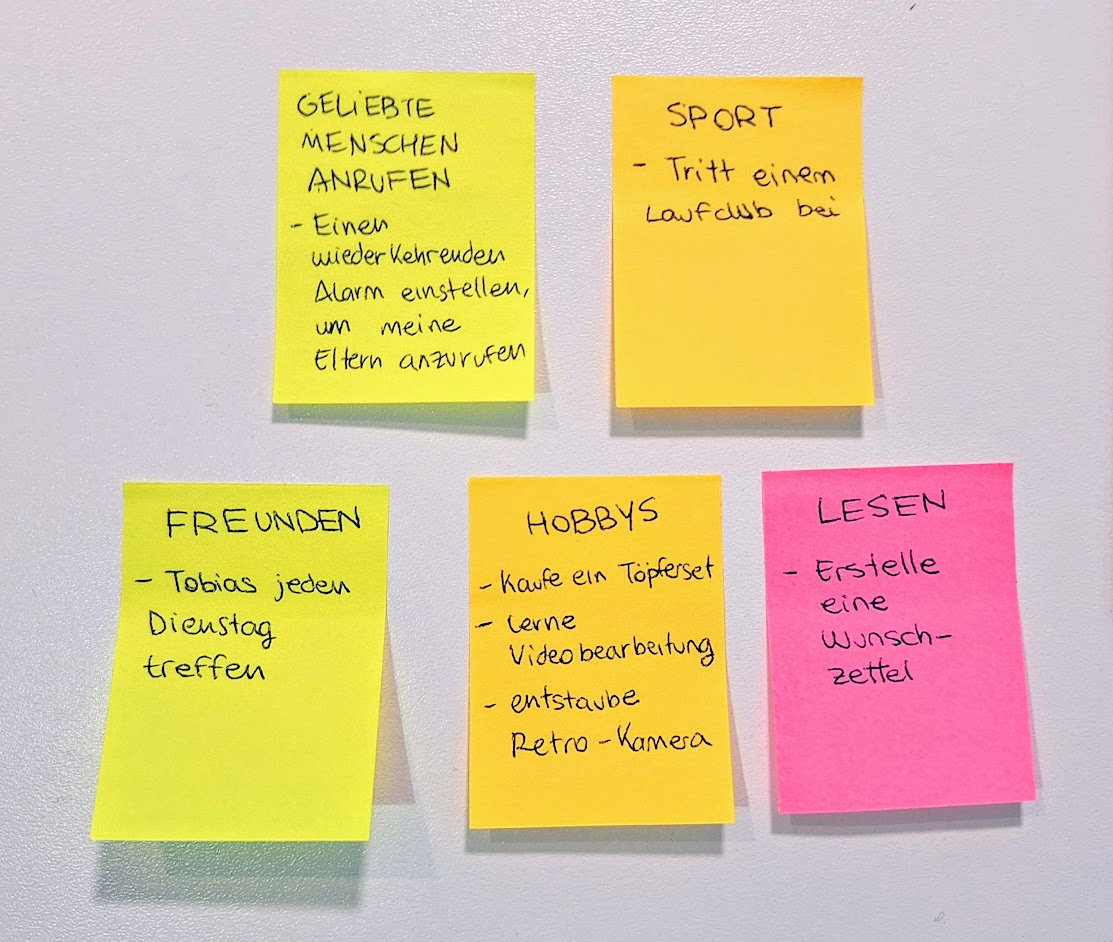 GELIEBTE
MENSCHEN
ANRUFEN
- Einen
wiederkehrenden
Alarm einstellen,
um meine
Eltern anzurufen
SPORT
- Tritt einem
Laufclub bei
FREUNDEN
- Tobias jeden
Dienstag
treffen
HOBBYS
- Kaufe ein Töpferset
- Lerne
Videobearbeitung
- entstaube
Retro-Kamera
LESEN
- Erstelle
eine
Wunsch-
zettel